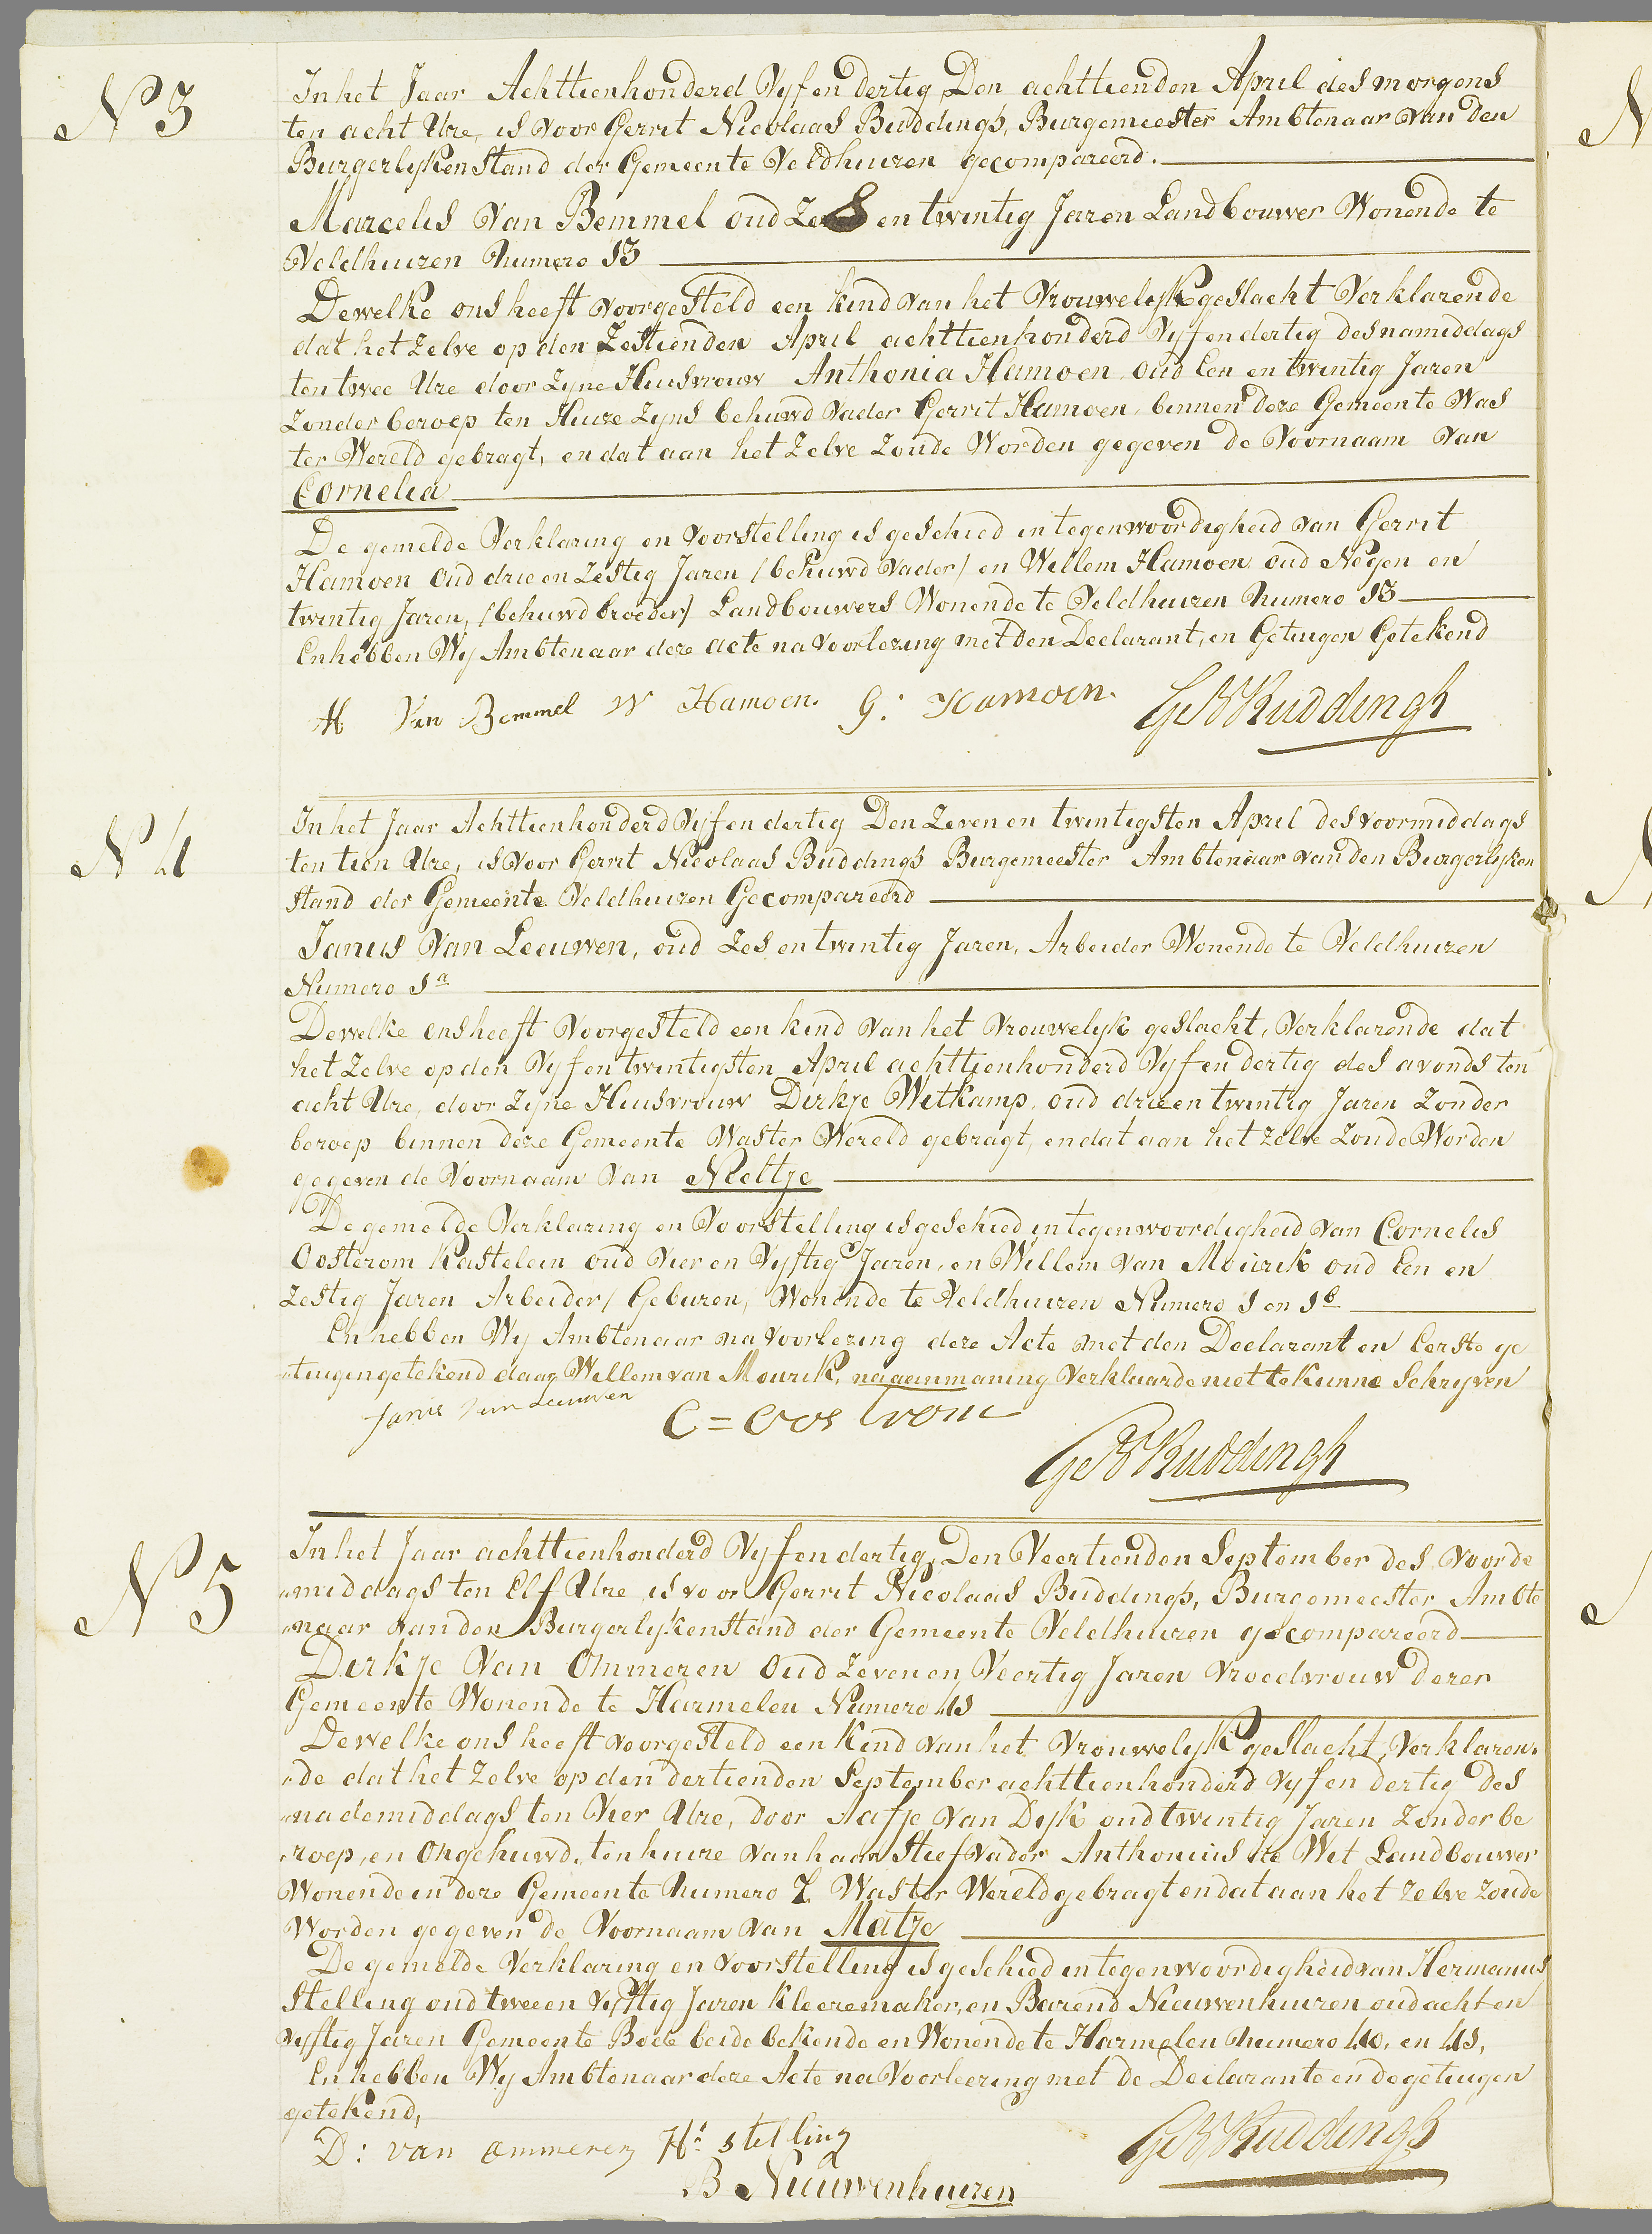 N 3
In het Jaar Achttienhonderd Vyf en dertig, Den achttienden April des morgens
ten acht Ure, is voor Gerrit Nicolaas Buddingh, Burgemeester Ambtenaar van den
Burgerlyken Stand der Gemeente Veldhuizen gecompareerd.
Marcelis Van Bemmel oud en twintig Jaren Landbouwer Wonende te
Veldhuizen Numero 13
Dewelke ons heeft voorgesteld een kind van het Vrouwelyk geslacht Verklarende
dat het zelve op den Zestienden April achttienhonderd Vyf en dertig des namiddags
ten twee Ure door zyne Huisvrouw Anthonia Hamoen oud Een en twintig Jaren
Zonder beroep ten Huize zyns behuwd Vader Gerrit Hamoen, binnen deze Gemeente Was
ter Wereld gebragt, en dat aan het zelve zoude Worden gegeven de Voornaam van
Cornelia
De gemelde Verklaring en voorstelling is geschied in tegenwoordigheid van Gerrit
Hamoen oud drie en Zestig Jaren /behuwd Vader/ en Willem Hamoen oud Negen en
twintig Jaren, /behuwd broeder/ Landbouwers Wonende te Veldhuizen Numero 13
En hebben Wy Ambtenaar deze acte na voorlezing met den Declarant, en Getuigen Getekend
M Van Bemmel W Hamoen. G: Hamoen. G N Buddingh
N 4
In het Jaar Achttienhonderd Vyf en dertig Den Zeven en twintigsten April des voormiddags
ten tien Ure, is voor Gerrit Nicolaas Buddingh Burgemeester Ambtenaar van den Burgerlyken
Stand der Gemeente Veldhuizen Gecompareerd
Janus Van Leeuwen, oud zes en twintig Jaren, Arbeider Wonende te Veldhuizen
Numero 1a
Dewelke ons heeft voorgesteld een kind van het Vrouwelyk geslacht, Verklarende dat
het zelve op den Vyf en twintigsten April achttienhonderd Vyf en dertig des avonds ten
acht Ure, door zyne Huisvrouw Dirkje Witkamp, oud drie en twintig Jaren Zonder
beroep binnen deze Gemeente Was ter Wereld gebragt, en dat aan het zelve zoude Worden
gegeven de Voornaam van Neeltje
De gemelde Verklaring en Voorstelling is geschied in tegenwoordigheid van Cornelis
Oosterom Kastelein oud Vier en Vyftig Jaren, en Willem van Mourik oud Een en
Zestig Jaren Arbeider, Geburen, Wonende te Veldhuizen Numero 1 en 1b
En hebben Wy Ambtenaar na voorlezing deze Acte met den Declarant en Eerste ge
tuigen getekend daar Willem van Mourik, na aanmaning Verklaarde niet te kunne Schryven
Janis van Leeuwen C = Oostrom
G N Buddingh
N 5
In het Jaar achttienhonderd Vyf en dertig, Den Veertienden September des Voorde
middags ten Elf Ure is voor Gerrit Nicolaas Buddingh, Burgemeester Ambte
naar van den Burgerlyken stand der Gemeente Veldhuizen gecompareerd
Dirkje Van Ommeren Oud Zeven en Veertig Jaren Vroedvrouw dezer
Gemeente Wonende te Harmelen Numero 41
Dewelke ons heeft voorgesteld een Kind van het Vrouwelyk geslacht, Verklaren
de dat het zelve op den dertienden September achttienhonderd vyf en dertig des
na de middags ten Vier Ure, door Aafje van Dyk oud twintig Jaren Zonder be
roep, en Ongehuwd, ten huize van haar Stief Vader Anthonius de Wit Landbouwer
Wonende in deze Gemeente Numero 7 Was ter Wereld gebragt en dat aan het zelve zoude
Worden gegeven de Voornaam van Matje
De gemelde Verklaring en Voorstelling is geschied in tegenwoordigheid van Hermanus
Stelling oud twee en Vyftig Jaren Kleeremaker, en Barend Nieuwenhuizen oud acht en
vyftig Jaren Gemeente Bode beide bekende en Wonende te Harmelen Numero 40, en 41,
En hebben Wy Ambtenaar deze Acte na Voorleezing met de Declarante en de getuigen
getekend,
D: van ommeren Hs stelling G N Buddingh
B Nieuwenhuizen